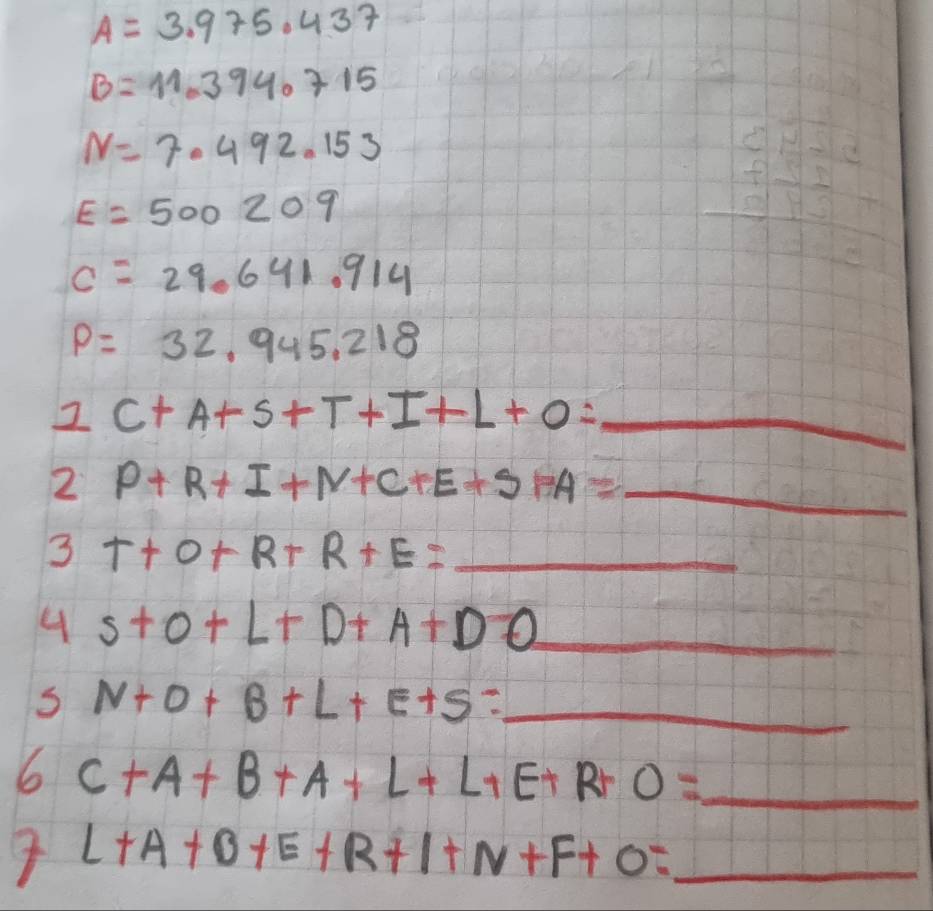 A = 3.975.437
B = 11.394.715
N = 7.492.153
E = 500 209
C = 29.641.914
P = 32.945.218
1 C+A+S+T+I+L+O=
2 P+R+I+N+C+E+S+A=
3 T+O+R+R+E=
4 S+O+L+D+A+D O
5 N+O+B+L+E+S=
6 C+A+B+A+L+L+E+R+O=
7 L+A+B+E+R+I+N+F+O=